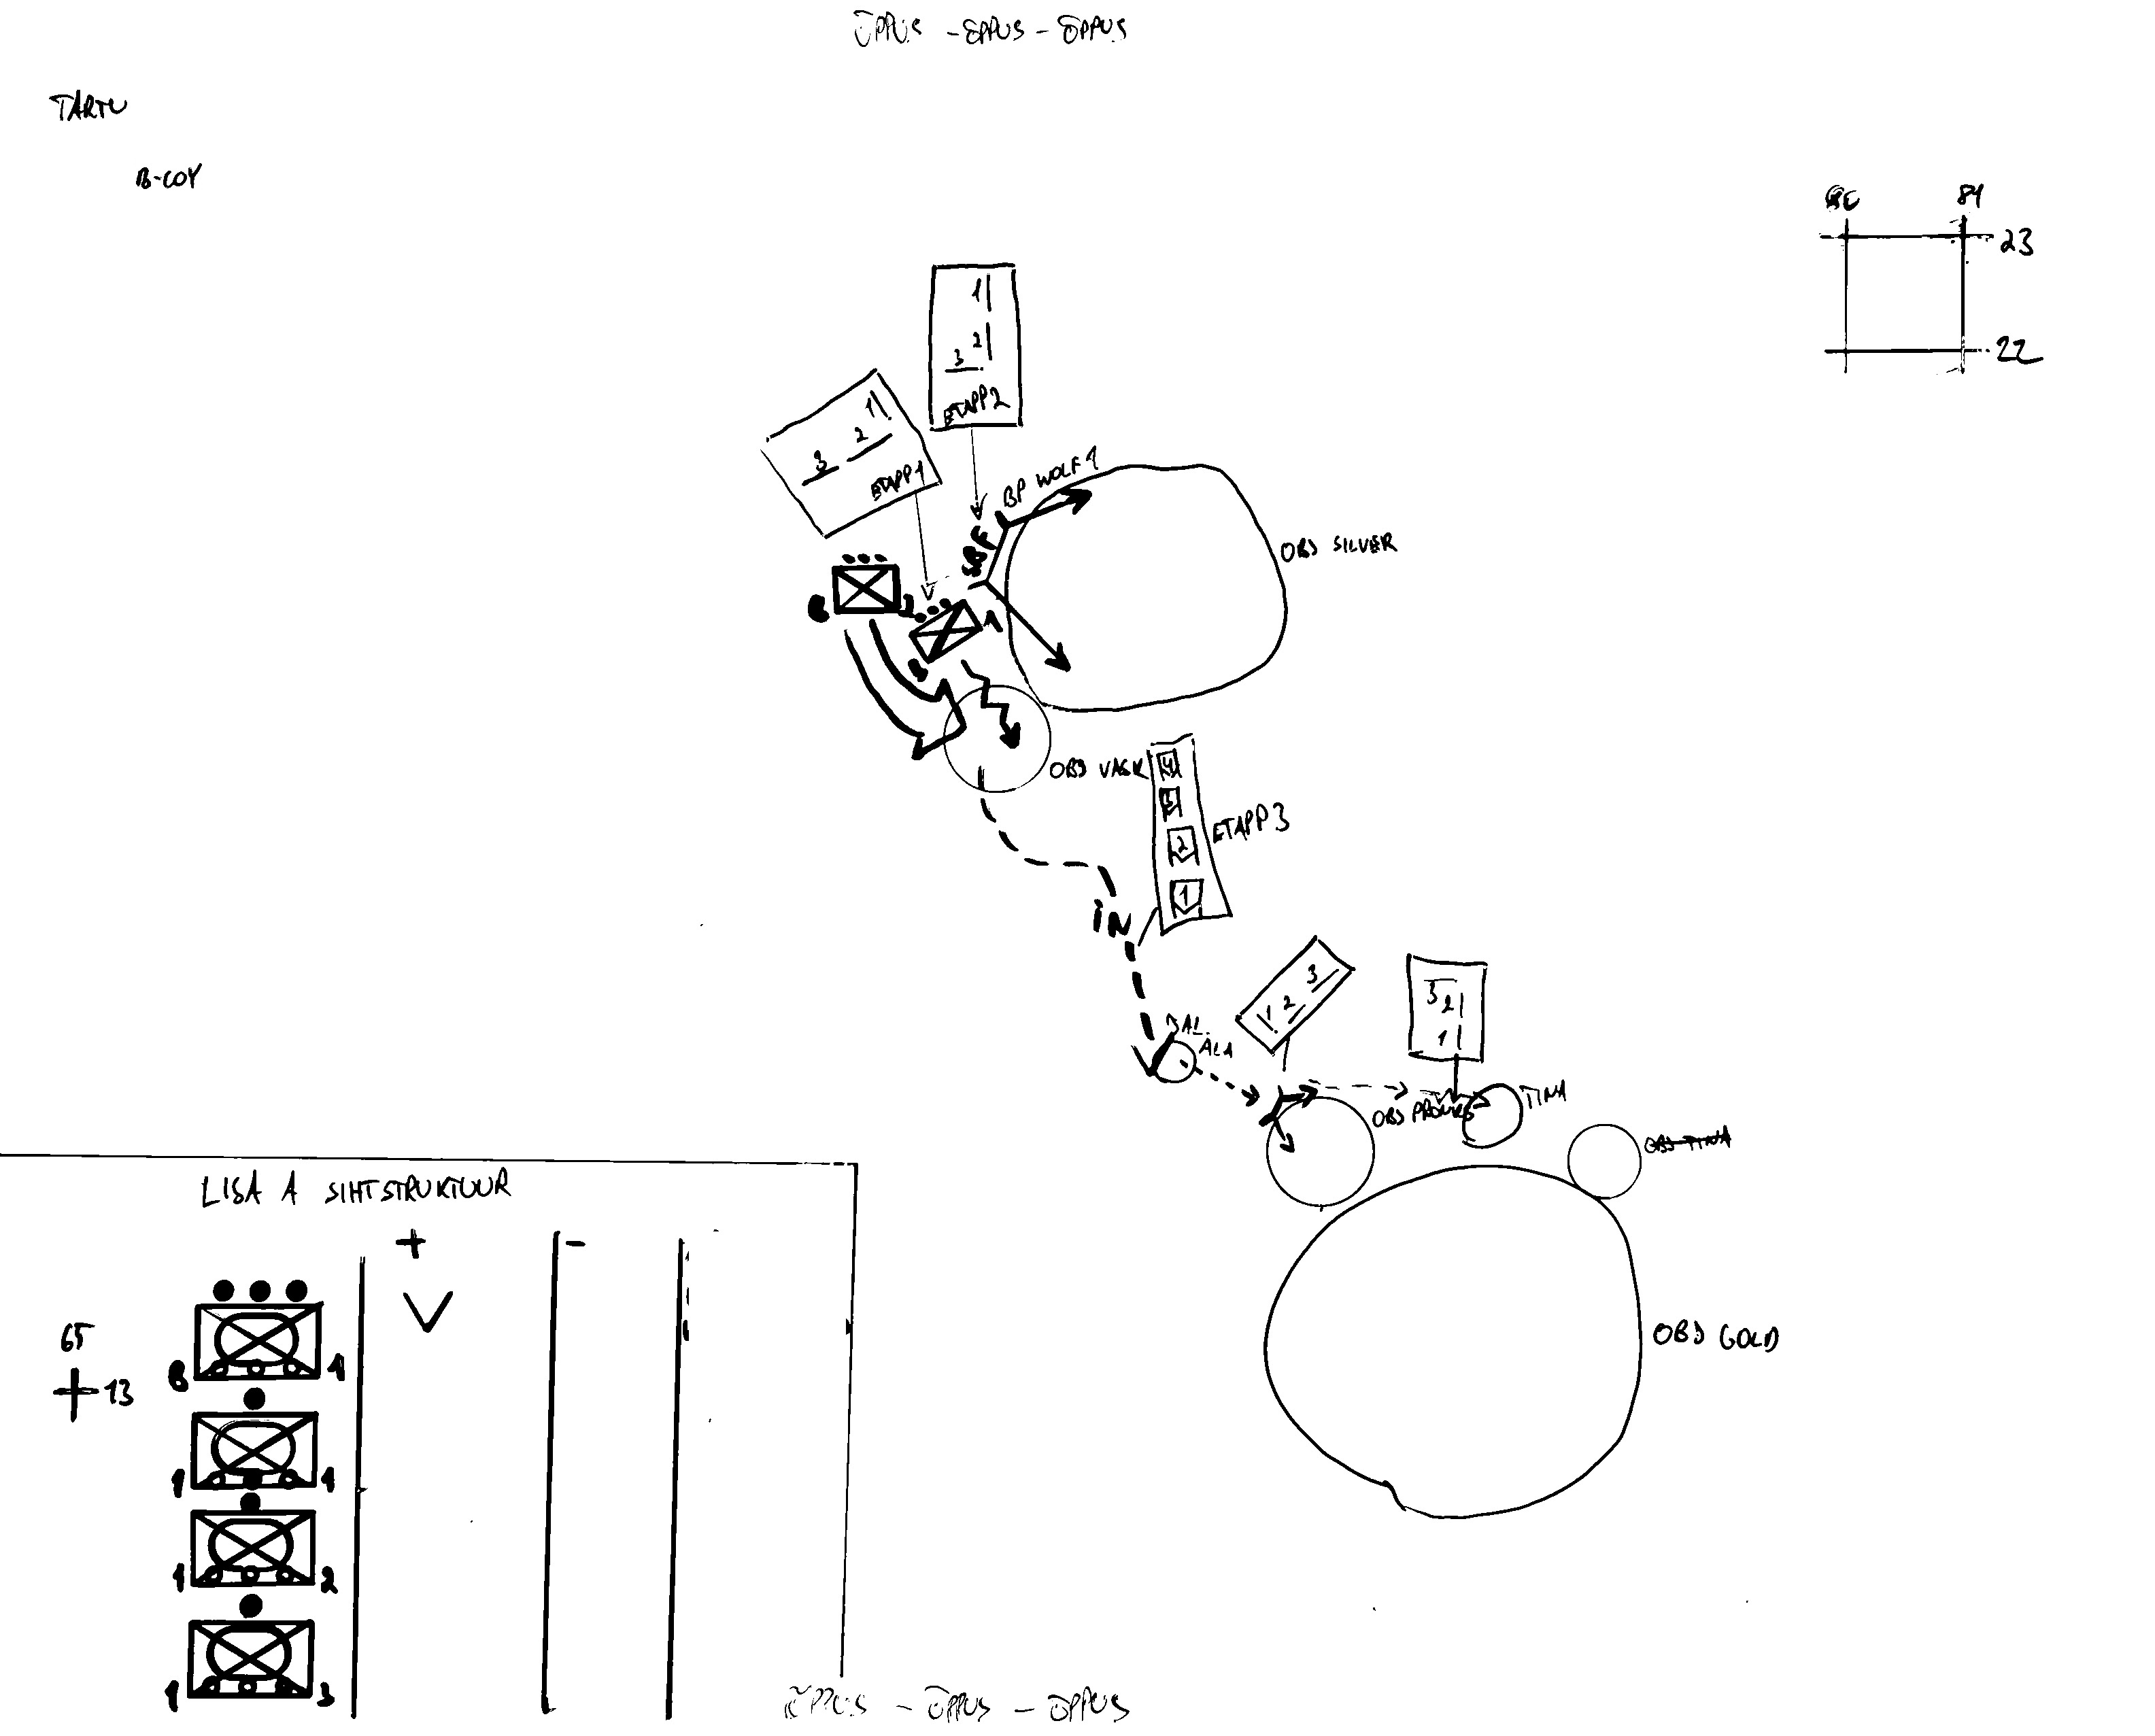 ÕPPUS - ÕPPUS - ÕPPUS
TARTU
B-COY
84
23
22
1
2
3
ETAPP 2
1
2
3
ETAPP 1
BP WOLF 1
SBF
OBJ SILVER
B
1
OBJ VASK
4
3
2
1
ETAPP 3
IN
3
1 2
3
2
1
TINA
OBJ TINA
OBJ GOLD
LISA A SIHTSTRUKTUUR
+ -
65
13
B 1
1 1
1 2
1 3
ÕPPUS - ÕPPUS - ÕPPUS